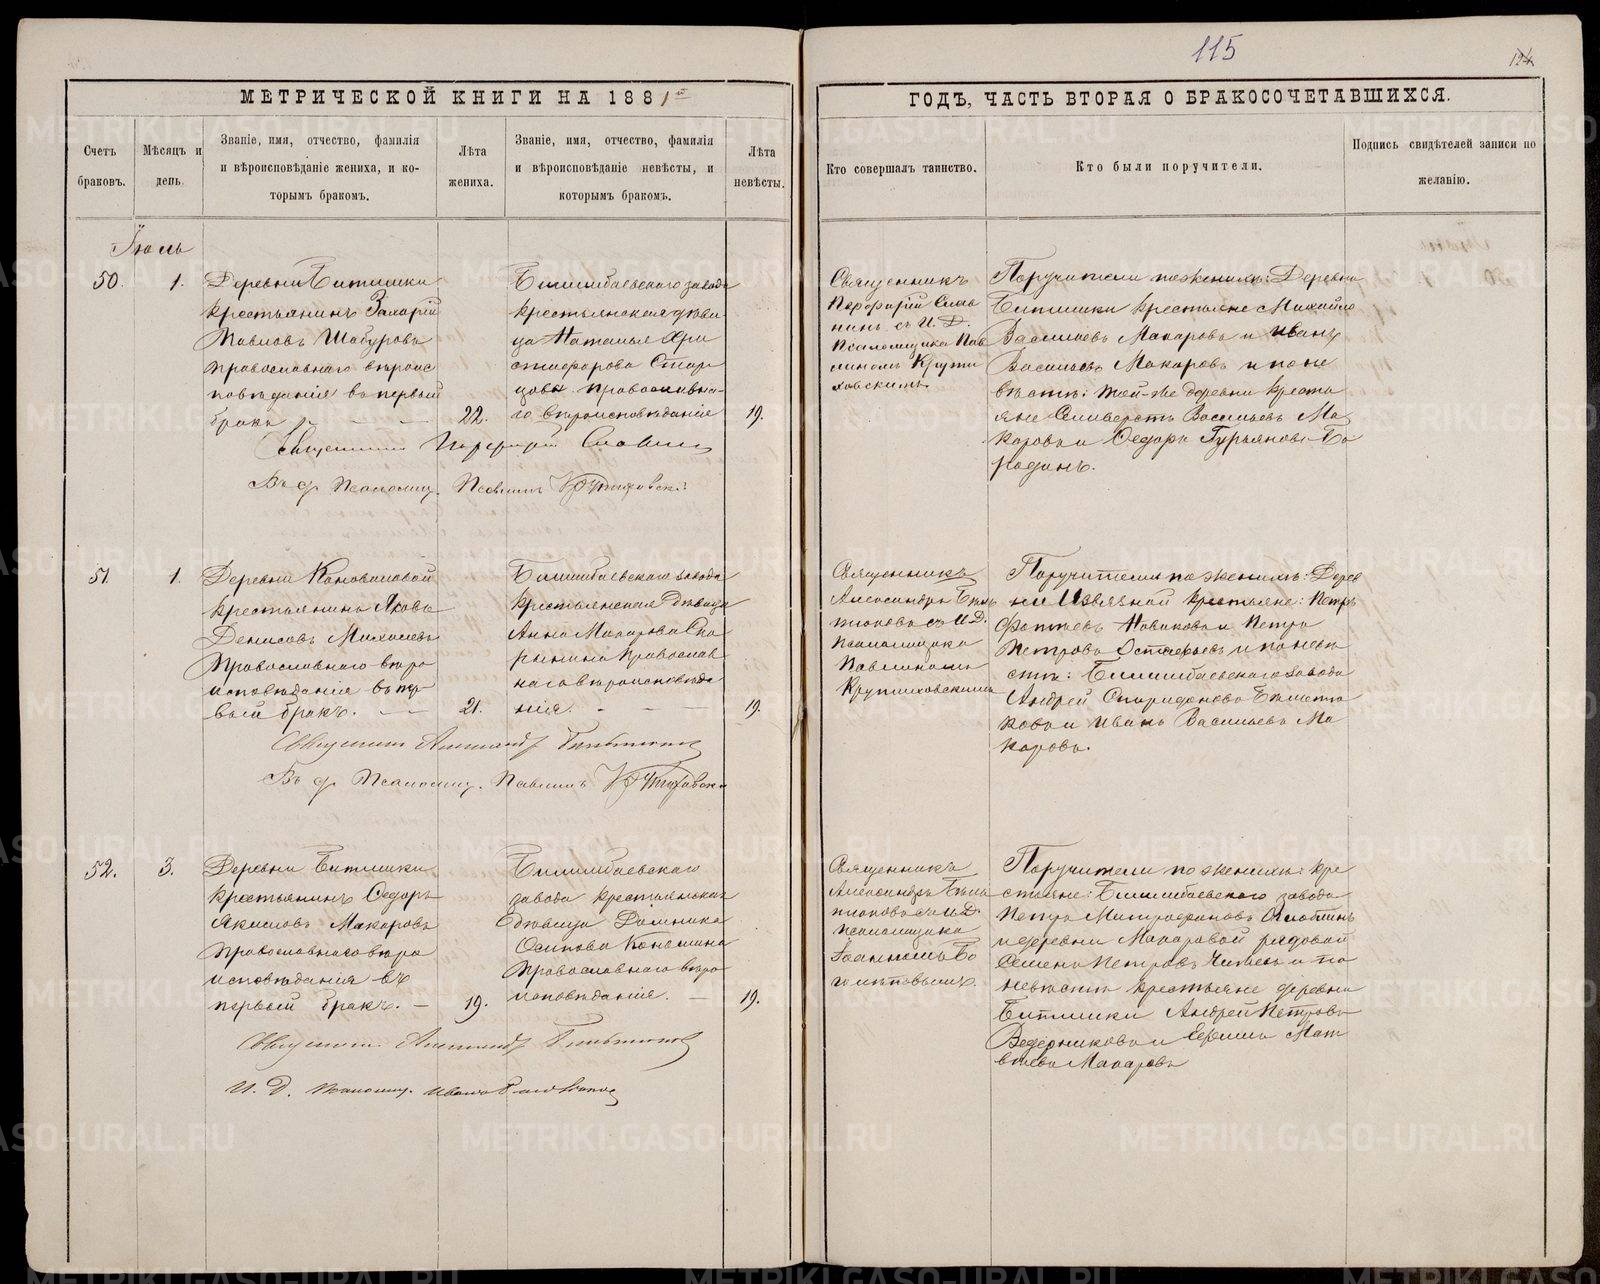 115
124
МЕТРИЧЕСКОЙ КНИГИ НА 1881й
ГОДЪ, ЧАСТЬ ВТОРАЯ О БРАКОСОЧЕТАВШИХСЯ.
Счетъ
браковъ.
Мѣсяцъ и
день.
Званіе, имя, отчество, фамилія
и вѣроисповѣданіе жениха, и ко-
торымъ бракомъ.
Лѣта
жениха.
Званіе, имя, отчество, фамилія
и вѣроисповѣданіе невѣсты, и
которымъ бракомъ.
Лѣта
невѣсты.
Кто совершалъ таинство.
Кто были поручители.
Подпись свидѣтелей записи по
желанію.
Іюль
50.
1.
Деревни Битимки
крестьянинъ Захарій
Павловъ Шабуровъ
православнаго вѣроис
повѣданія въ первый
бракъ
22.
Билимбаевскаго завода
крестьянская дѣви
ца Наталья Хри
стофорова Стар
цова православна-
го вѣроисповѣданія
19.
Священникъ
Порфирій Слав
нинъ съ И. Д.
Псаломщика Пав
линомъ Крути
ховскимъ
Поручители по женихѣ: Деревни
Битимки крестьяне Михайло
Васильевъ Макаровъ и Иванъ
Васильевъ Макаровъ и по не
вѣстѣ: той-же деревни кресть
яне Селиверстъ Васильевъ Ма
каровъ и Ѳедоръ Гурьяновъ Бо
родинъ.
Священникъ Порфирій Славнинъ
Въ д. Псаломщ. Павлинъ Крутиховск:
51.
1.
Деревни Коноваловой
крестьянинъ Яковъ
Денисовъ Михалевъ
православнаго вѣро
исповѣданія въ пер
вый бракъ.
21.
Билимбаевскаго завода
крестьянская дѣвица
Анна Макарова Ска
рынина православ
наго вѣроисповѣда
нія.
19.
Священникъ
Александръ Бель
тюковъ съ И.Д.
псаломщика
Павлиномъ
Крутиховскимъ
Поручители по женихѣ: Дерев
ни Извязной крестьяне: Петръ
Фотіевъ Новиковъ и Петръ
Петровъ Остафьевъ и по невѣ
стѣ: Билимбаевскаго завода
Андрей Спиридоновъ
ковъ и Иванъ Васильевъ Ма
каровъ.
Священникъ Александръ Бельтюковъ
Въ д. Псаломщ. Павлинъ Крутиховск
52.
3.
Деревни Битимки
крестьянинъ Ѳедоръ
Якимовъ Макаровъ
православнаго вѣро
исповѣданія въ
первый бракъ.
19.
Билимбаевскаго
завода крестьянская
дѣвица Домника
Осипова Конынина
православнаго вѣро
исповѣданія.
19.
Священникъ
Александръ Бель
тюковъ съ И.Д.
псаломщика
Іоанномъ Бо
голѣповымъ.
Поручители по женихѣ: кре
стьяне: Билимбаевскаго завода
Петръ Митрофановъ
и деревни Макаровой рядовой
Семенъ Петровъ и по
невѣстѣ крестьяне деревни
Битимки Андрей Петровъ
Ведерниковъ и Ефимъ Мат
вѣевъ Макаровъ
Священникъ Александръ Бельтюковъ
И. Д. Псаломщ. Иванъ